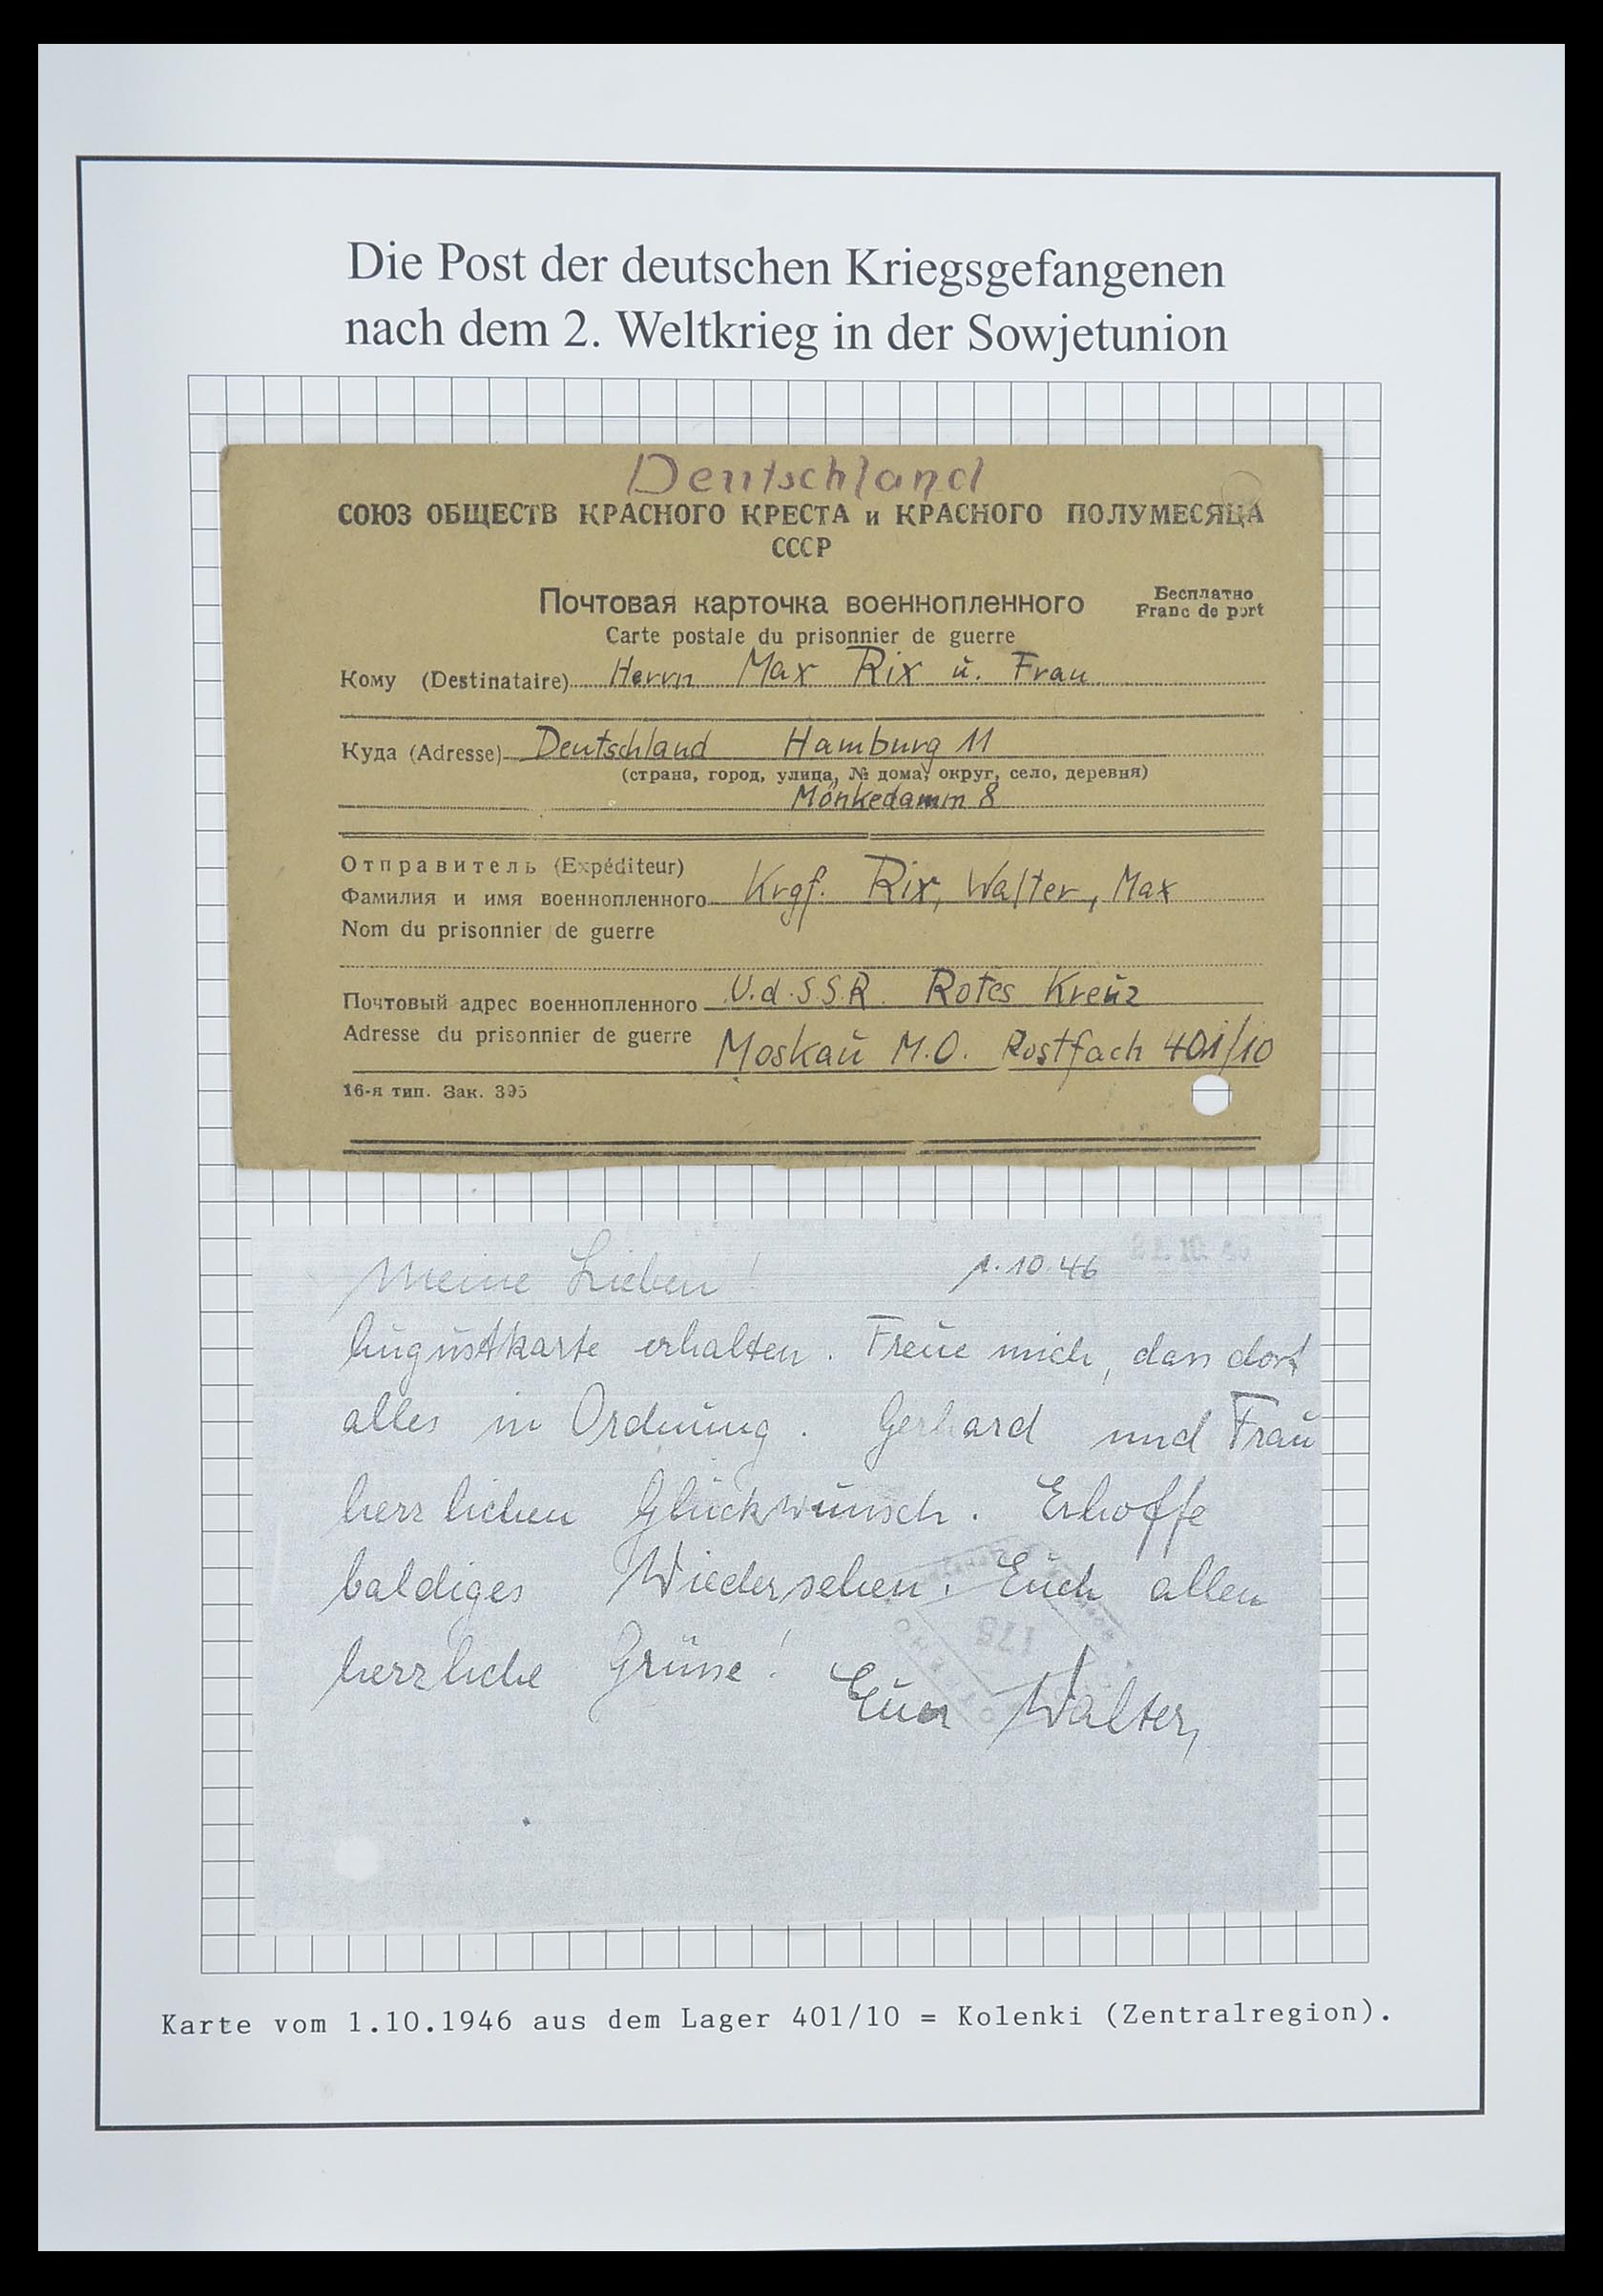 Die Post der deutschen Kriegsgefangenen
nach dem 2. Weltkrieg in der Sowjetunion
Deutschland
СОЮЗ ОБЩЕСТВ КРАСНОГО КРЕСТА и КРАСНОГО ПОЛУМЕСЯЦА
СССР
Почтовая карточка военнопленного
Бесплатно
Franc de port
Carte postale du prisonnier de guerre
Кому (Destinataire) Herrn Max Rix ŭ. Frau
Куда (Adresse) Deutschland Hamburg 11
(страна, город, улица, № дома, округ, село, деревня)
Mönkedamm 8
Отправитель (Expéditeur)
Фамилия и имя военнопленного Krgf. Rix, Walter, Max
Nom du prisonnier de guerre
Почтовый адрес военнопленного U.d.S.S.R. Rotes Kreŭz
Adresse du prisonnier de guerre Moskaŭ M.O. Postfach 401/10
16-я тип. Зак. 395
Meine Lieben! 1.10.46 21.10.46
Aŭgŭstkarte erhalten. Freŭe mich, dass dort
alles in Ordnŭng. Gerhard ŭnd Fraŭ
herzlichen Glückwŭnsch. Erhoffe
baldiges Wiedersehen. Eŭch allen
herzliche Grüsse! Eŭer Walter,
178
Karte vom 1.10.1946 aus dem Lager 401/10 = Kolenki (Zentralregion).